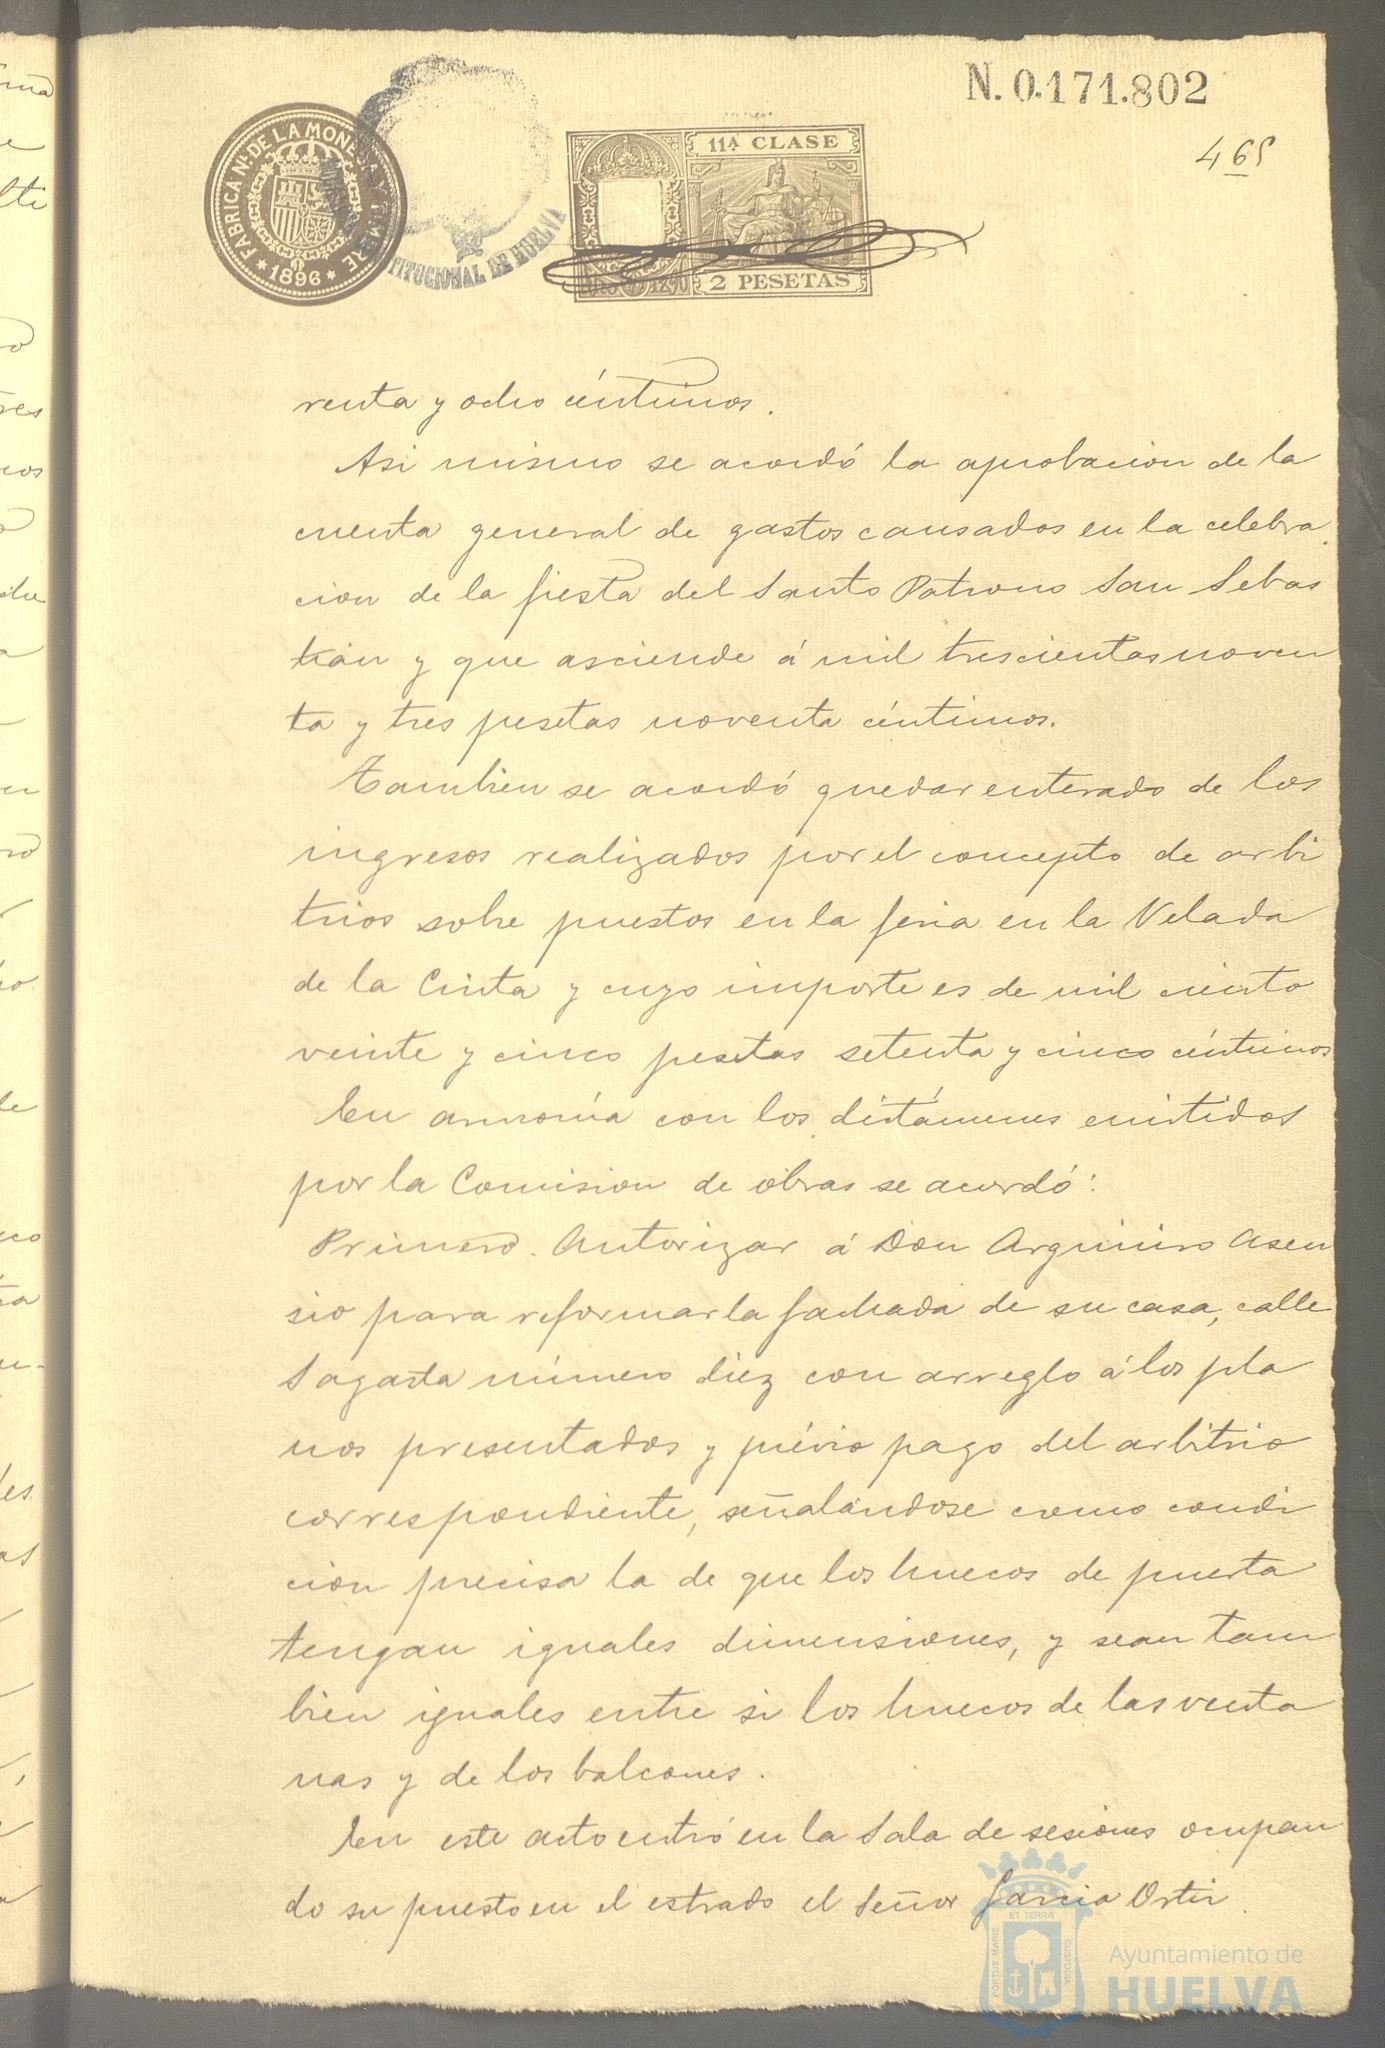 N. 0.171.802
465
FABRICA Nl. DE LA MONEDA Y TIMBRE
* 1896 *
TITUCIONAL DE HUELVA
11ª CLASE
2 PESETAS
renta y ocho céntimos.
Asi mismo se acordó la aprobacion de la
cuenta general de gastos causados en la celebra
cion de la fiesta del Santo Patrono San Sebas
tián y que asciende á mil trescientas noven
ta y tres pesetas noventa céntimos.
Tambien se acordó quedar enterado de los
ingresos realizados por el concepto de arbi
trios sobre puestos en la feria en la Velada
de la Cinta y cuyo importe es de mil ciento
veinte y cinco pesetas setenta y cinco céntimos
En armonía con los dictámenes emitidos
por la Comision de obras se acordó:
Primero. Autorizar á Don Argimiro Asen
sio para reformar la fachada de su casa, calle
Sagasta número diez con arreglo á los pla
nos presentados y prévio pago del arbitrio
correspondiente, señalándose como condi
cion precisa la de que los huecos de puerta
tengan iguales dimensiones, y sean tam
bien iguales entre si los huecos de las venta
nas y de los balcones.
En este acto entró en la Sala de sesiones ocupan
do su puesto en el estrado el Señor Garcia Ortiz.
PORTUS MARIS ET TERRÆ CUSTODIA
Ayuntamiento de
HUELVA